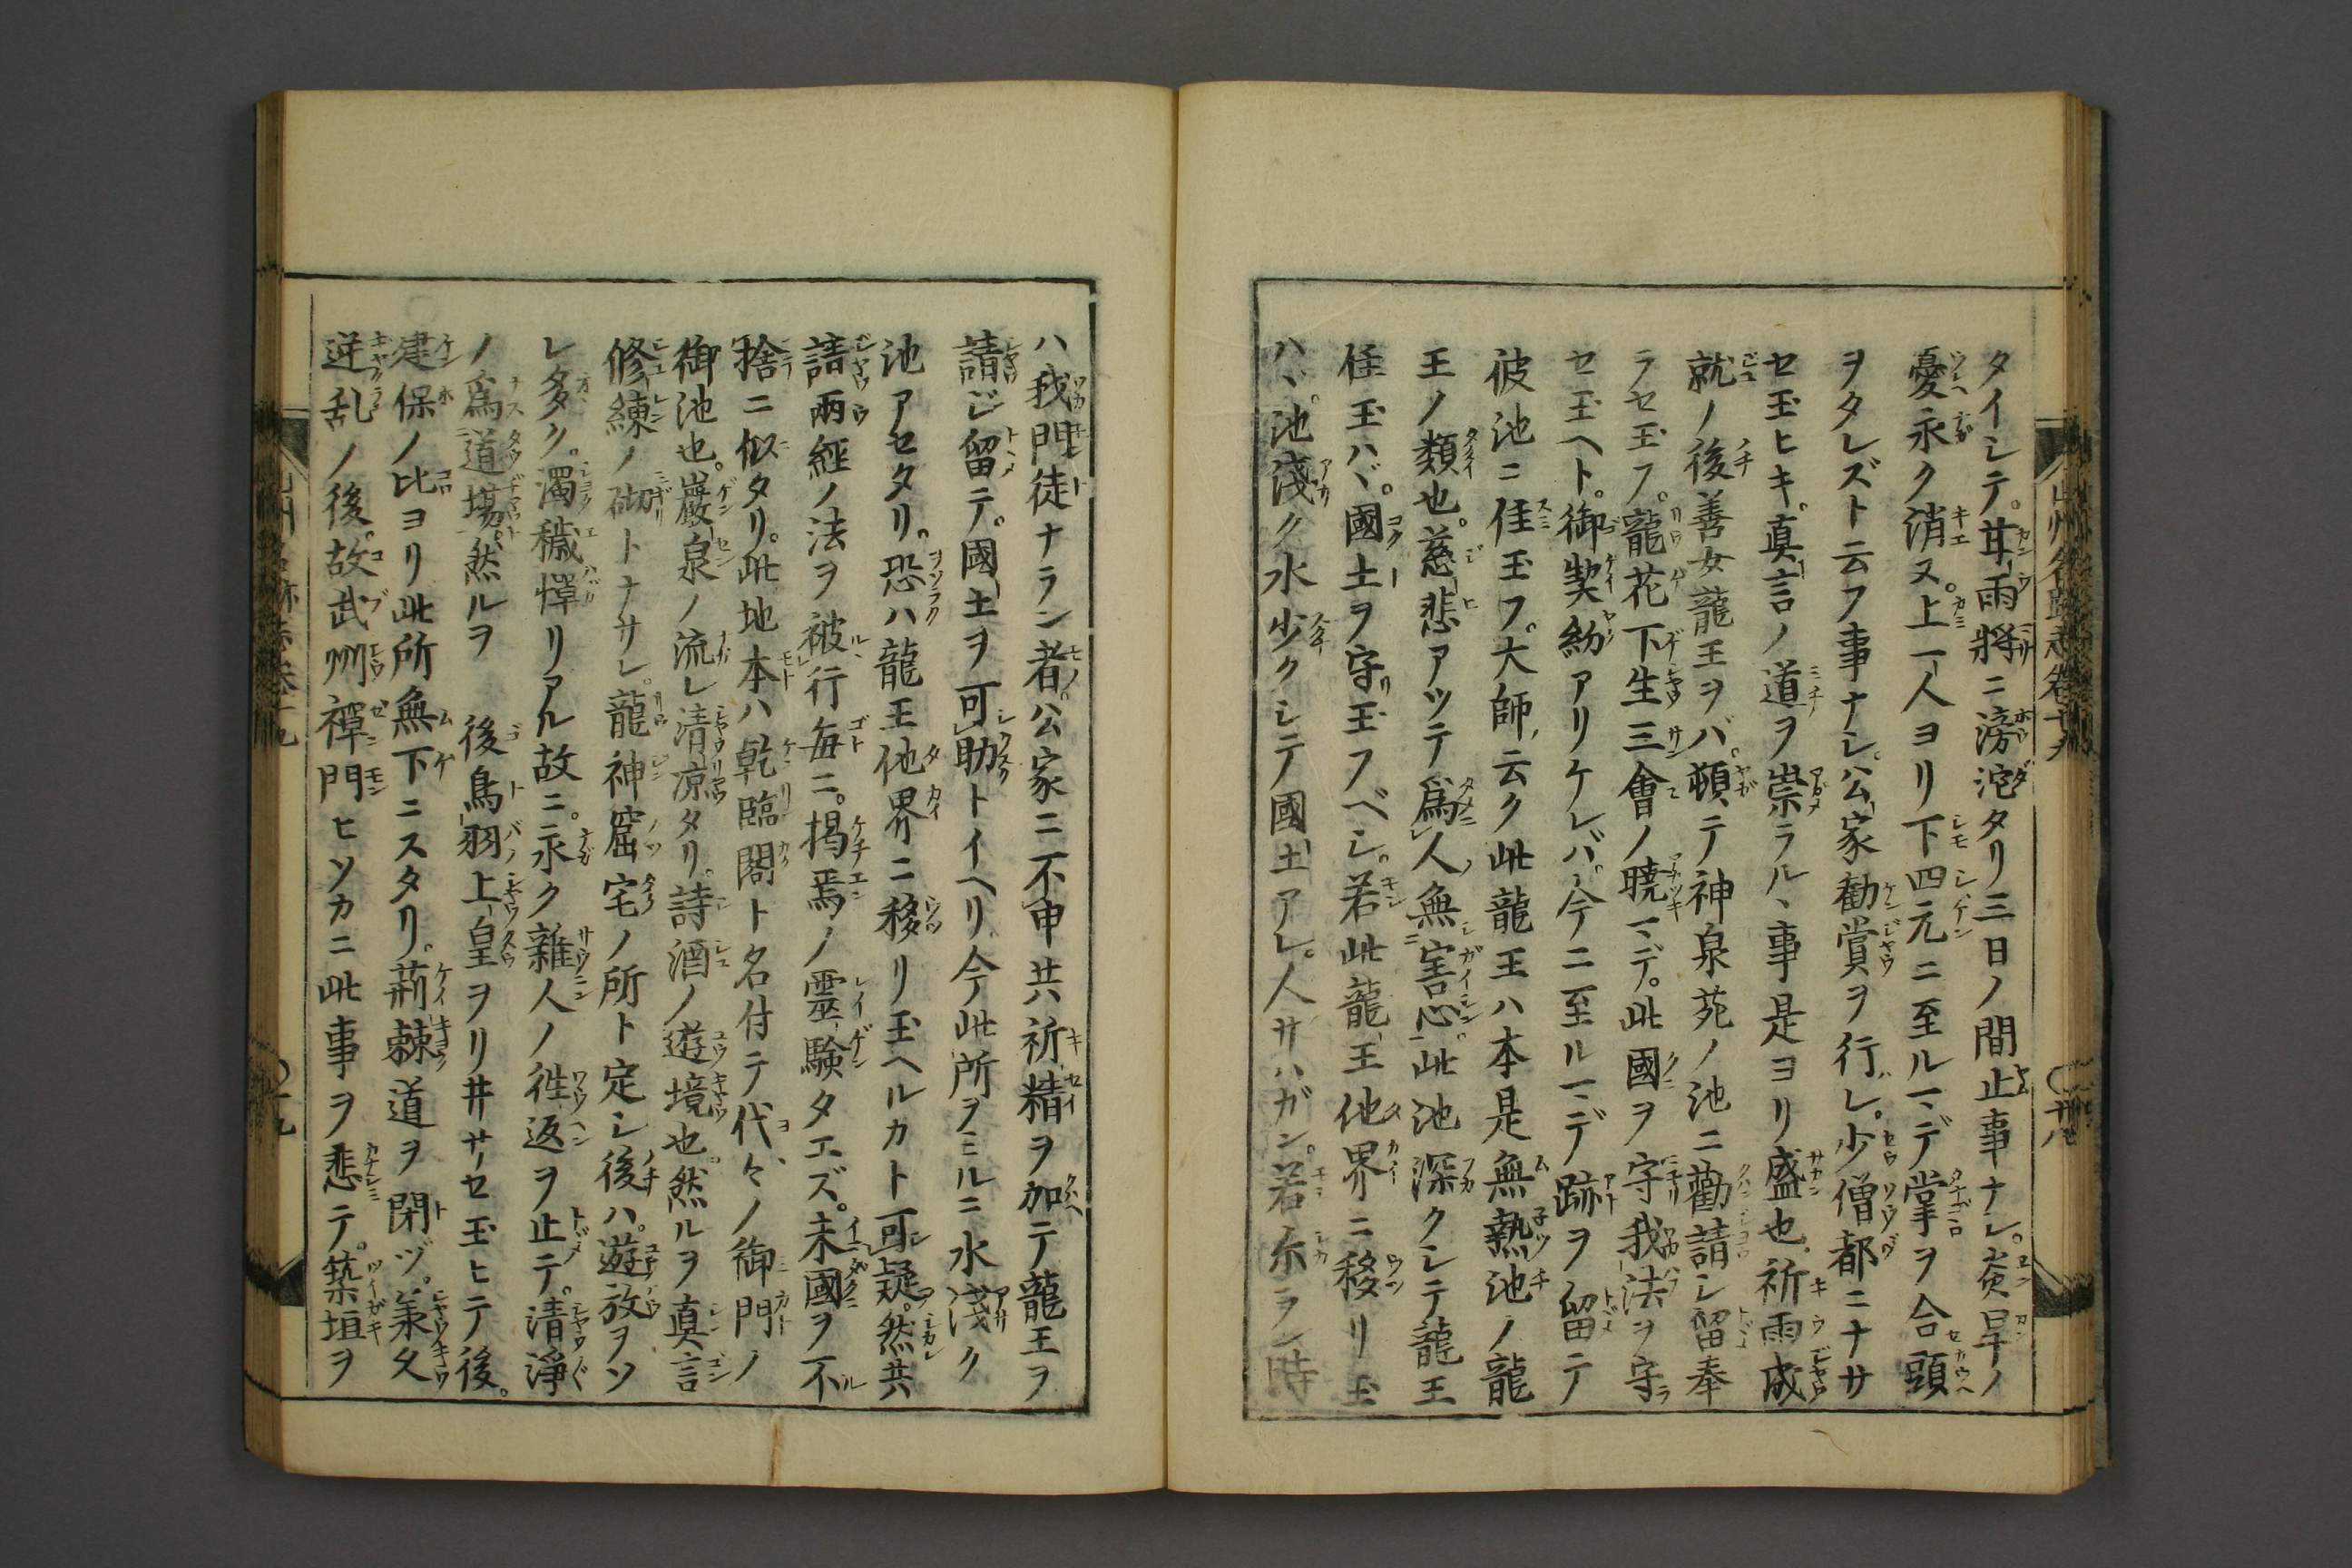 タイシテ。甘雨將ニ滂沱タリ三日ノ間止事ナシ。炎旱ノ
憂永ク消ヌ。上一人ヨリ下四元ニ至ルマデ掌ヲ合頭
ヲタレズト云フ事ナシ。公家勸賞ヲ行レ。少僧都ニナサ
セ玉ヒキ。真言ノ道ヲ崇ラルヽ事是ヨリ盛也。祈雨成
就ノ後善女龍王ヲバ。頓テ神泉苑ノ池ニ勸請シ留奉
ラセ玉フ。龍花下生三會ノ曉マデ。此國ヲ守我法ヲ守
セ玉ヘト。御契約アリケレバ。今ニ至ルマデ跡ヲ留テ
彼池ニ住玉フ。大師ノ云ク此龍王ハ本是無熱池ノ龍
王ノ類也。慈悲アツテ為人無害心。此池深クシテ龍王
住玉ハヾ。國土ヲ守リ玉フベシ。若此龍王他界ニ移リ玉
ハヽ。池淺ク水少クシテ國土アレ。人サハガン。若尓ラン時
ハ我門徒ナラン者。公家ニ不申共祈精ヲ加テ龍王ヲ
請ジ留テ。國土ヲ可助トイヘリ。今此所ヲミルニ水淺ク
池アセタリ。恐ハ龍王他界ニ移リ玉ヘルカト可疑。然共
請雨經ノ法ヲ被行毎ニ。掲焉ノ靈驗タエズ。未國ヲ不
捨ニ似タリ。此地本ハ乾臨閣ト名付テ代々ノ御門ノ
御池也。巖泉ノ流レ清凉タリ。詩酒ノ遊境也。然ルヲ真言
修練ノ砌トナサレ。龍神窟宅ノ所ト定シ後ハ。遊放ヲソ
レ多ク。濁穢憚リアル故ニ。永ク雜人ノ徃返ヲ止テ。清淨
ノ爲道塲。然ルヲ 後鳥羽上皇ヲリ井サセ玉ヒテ後。
建保ノ比ヨリ此所無下ニスタリ。荊棘道ヲ閉ヅ。羕久
逆乱ノ後。故武州禪門ヒソカニ此事ヲ悲テ。築垣ヲ